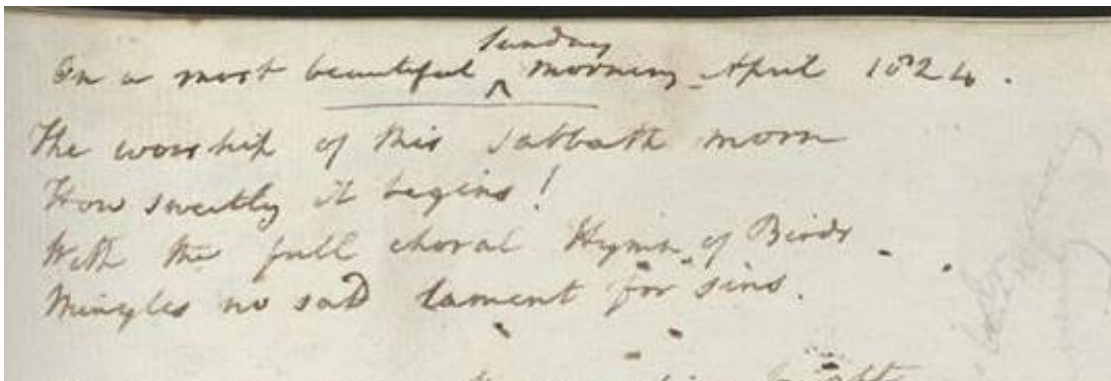 On a most beautiful Sunday morning April 1824.
The worship of this Sabbath morn
How sweetly it begins!
With the full choral Hymn of Birds
Mingles no sad lament for sins.